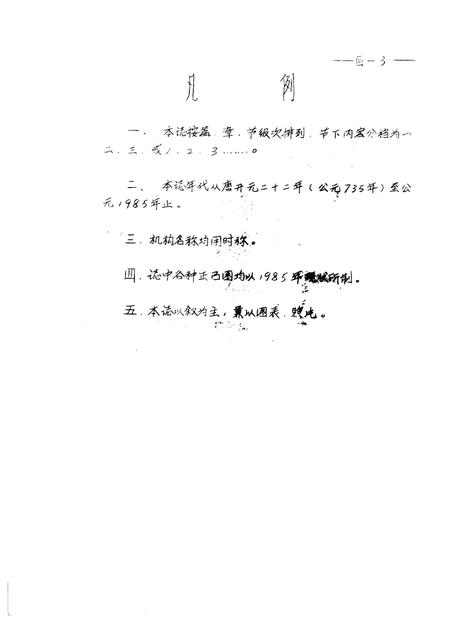 —目—3—
凡 例
一、本志按篇、章、节级次排列,节下内容分档为一
二、三、或1、2、3……。
二、本志年代从唐开元二十二年(公元735年)至公
元1985年止。
三、机构名称均用时称。
四、志中各种 图均以1985年 所制。
五、本志以叙为主,兼以图表、照